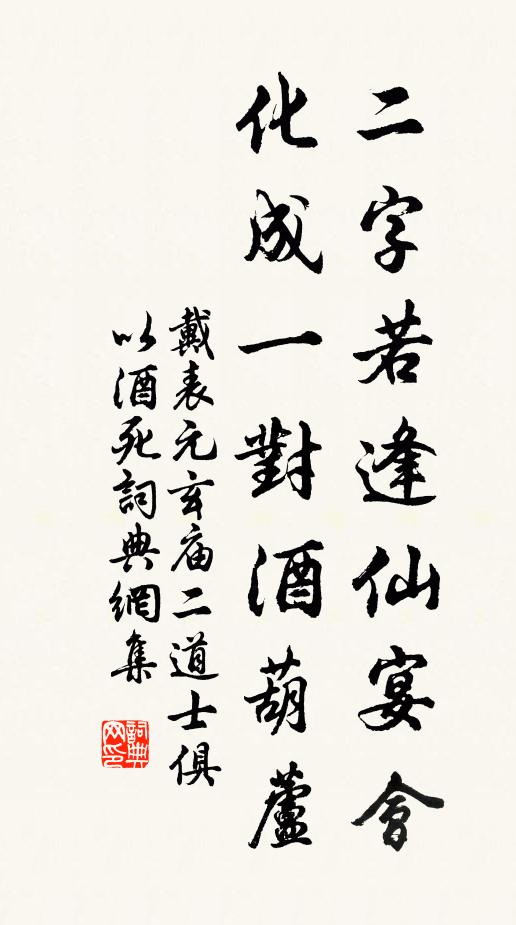 二字若逢仙宴會
化成一對酒葫蘆
戴表元玄庙二道士俱
以酒死詞典網集
詞典
网印